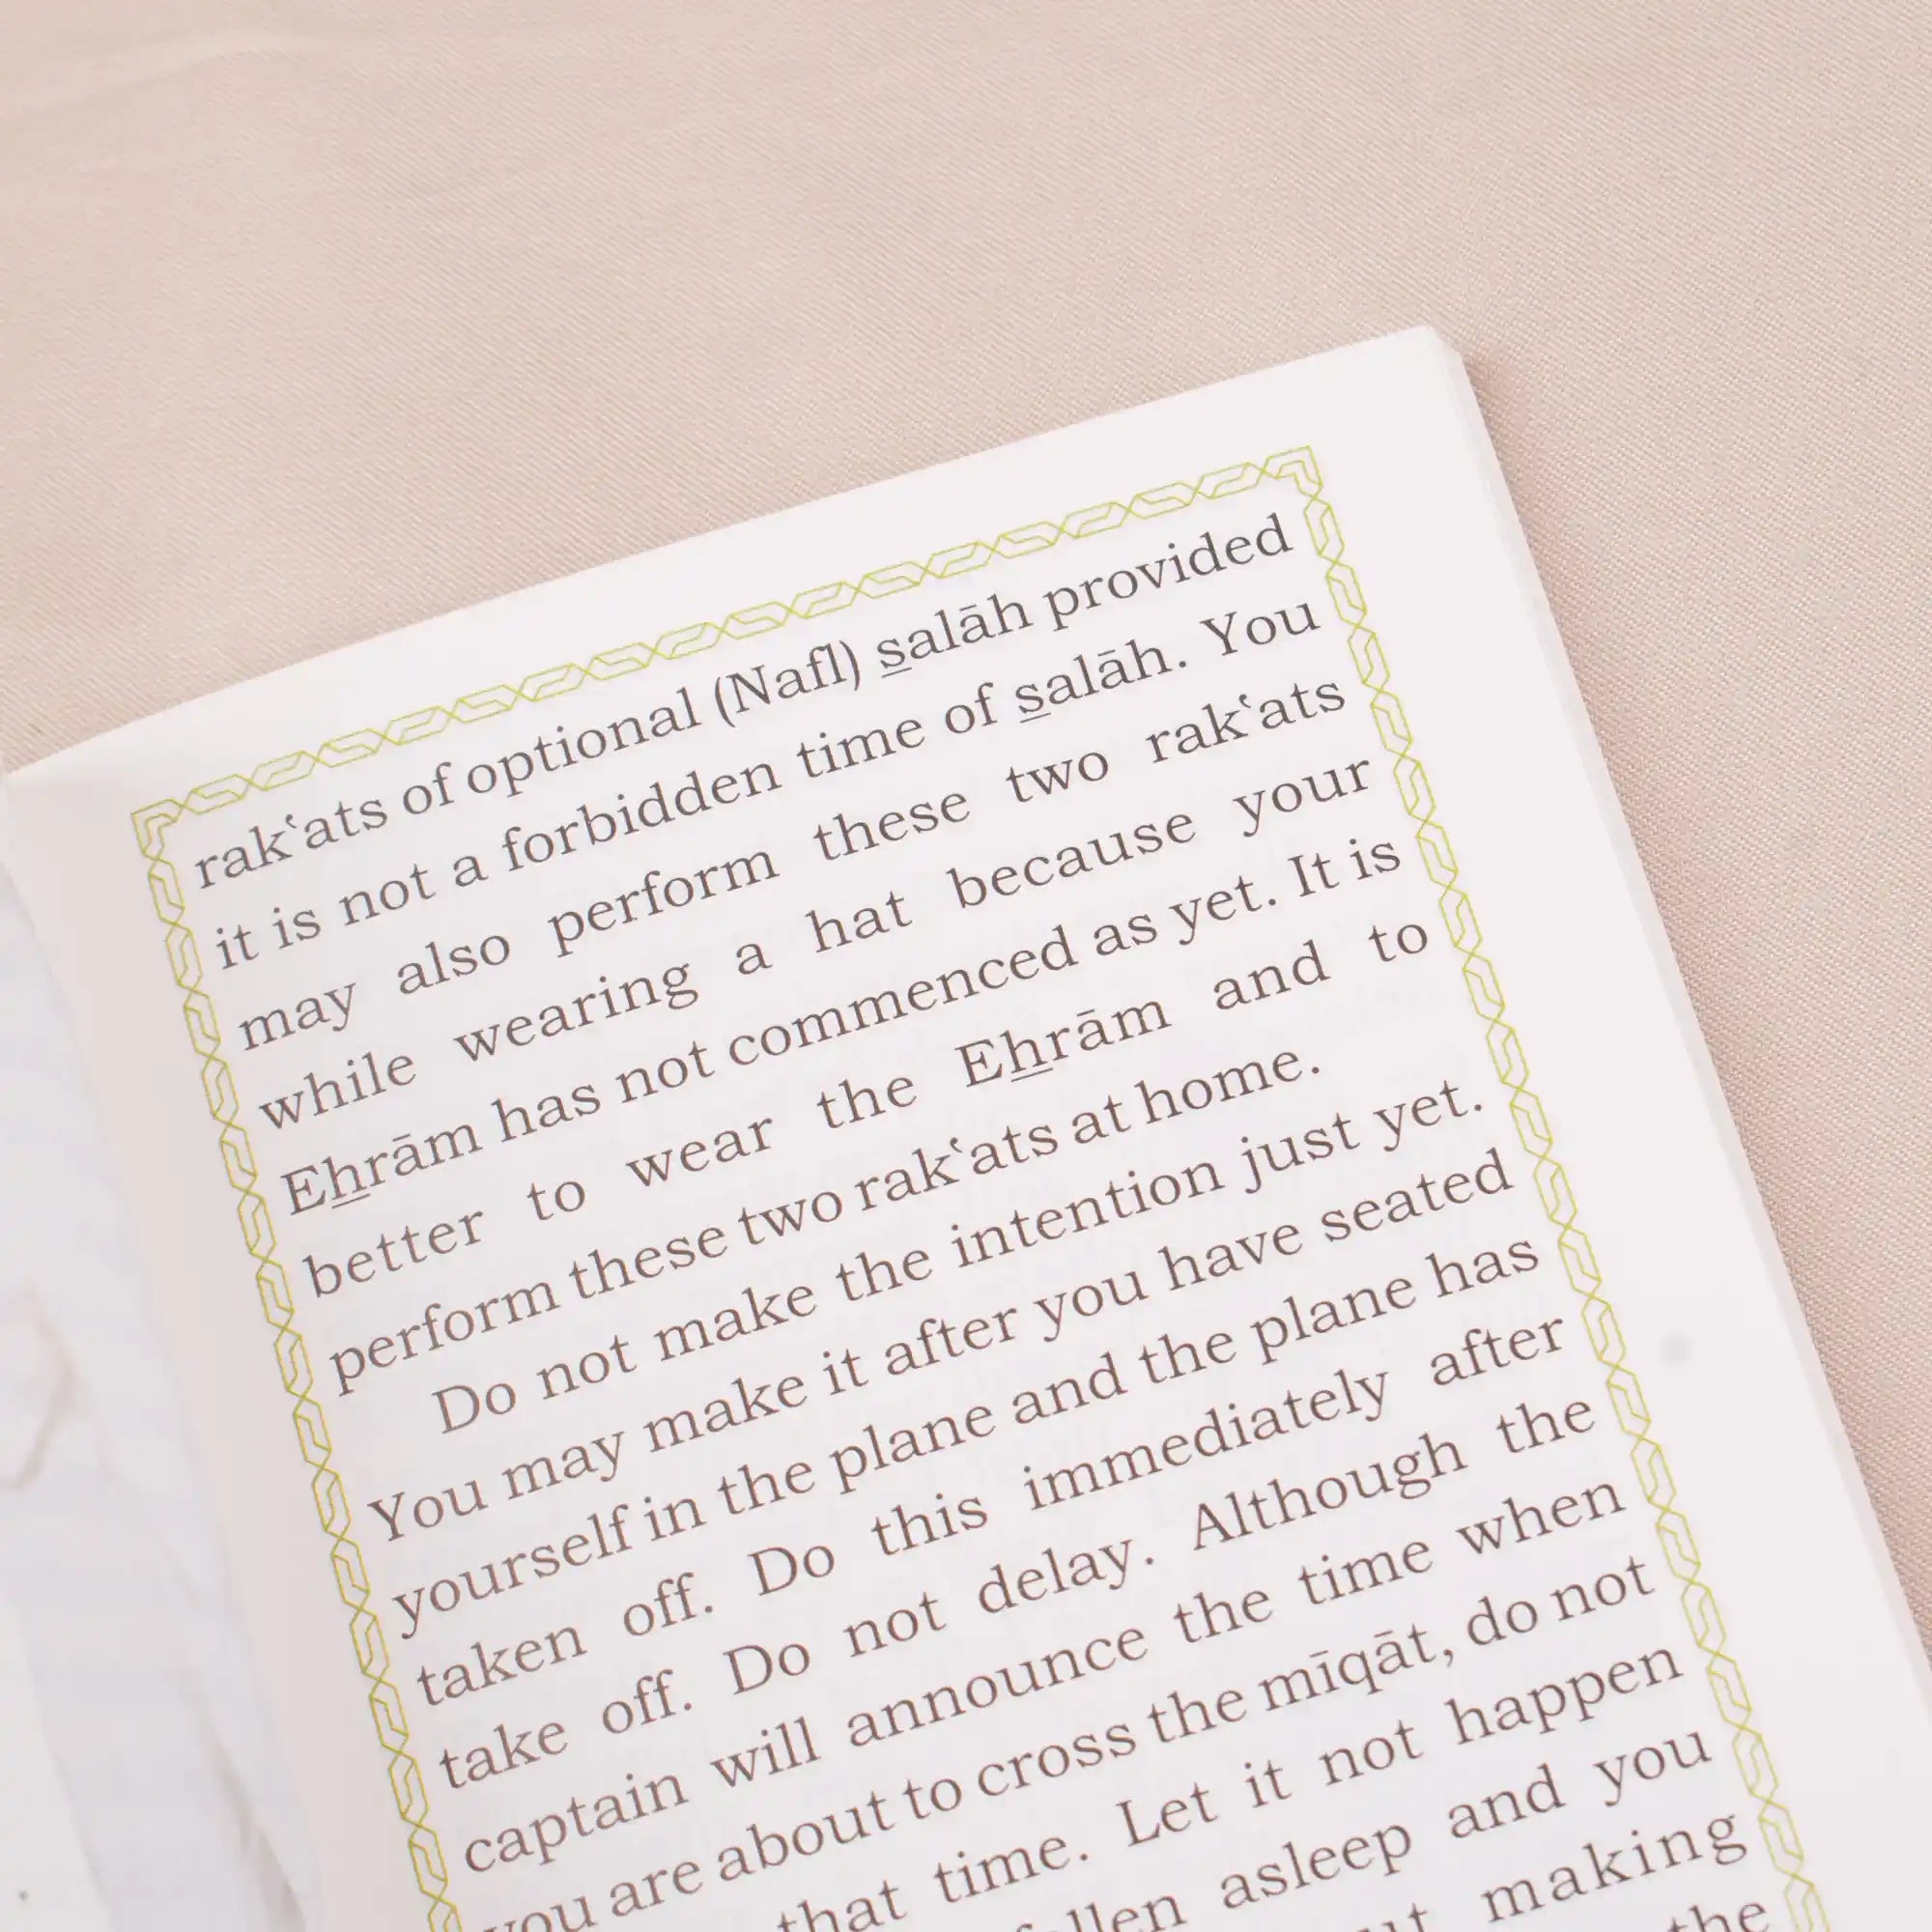 rakʿats of optional (Nafl) s̲alāh provided
it is not a forbidden time of s̲alāh. You
may also perform these two rakʿats
while wearing a hat because your
Eh̲rām has not commenced as yet. It is
better to wear the Eh̲rām and to
perform these two rakʿats at home.
Do not make the intention just yet.
You may make it after you have seated
yourself in the plane and the plane has
taken off. Do this immediately after
take off. Do not delay. Although the
captain will announce the time when
you are about to cross the mīqāt, do not
that time. Let it not happen
asleep and you
making
the